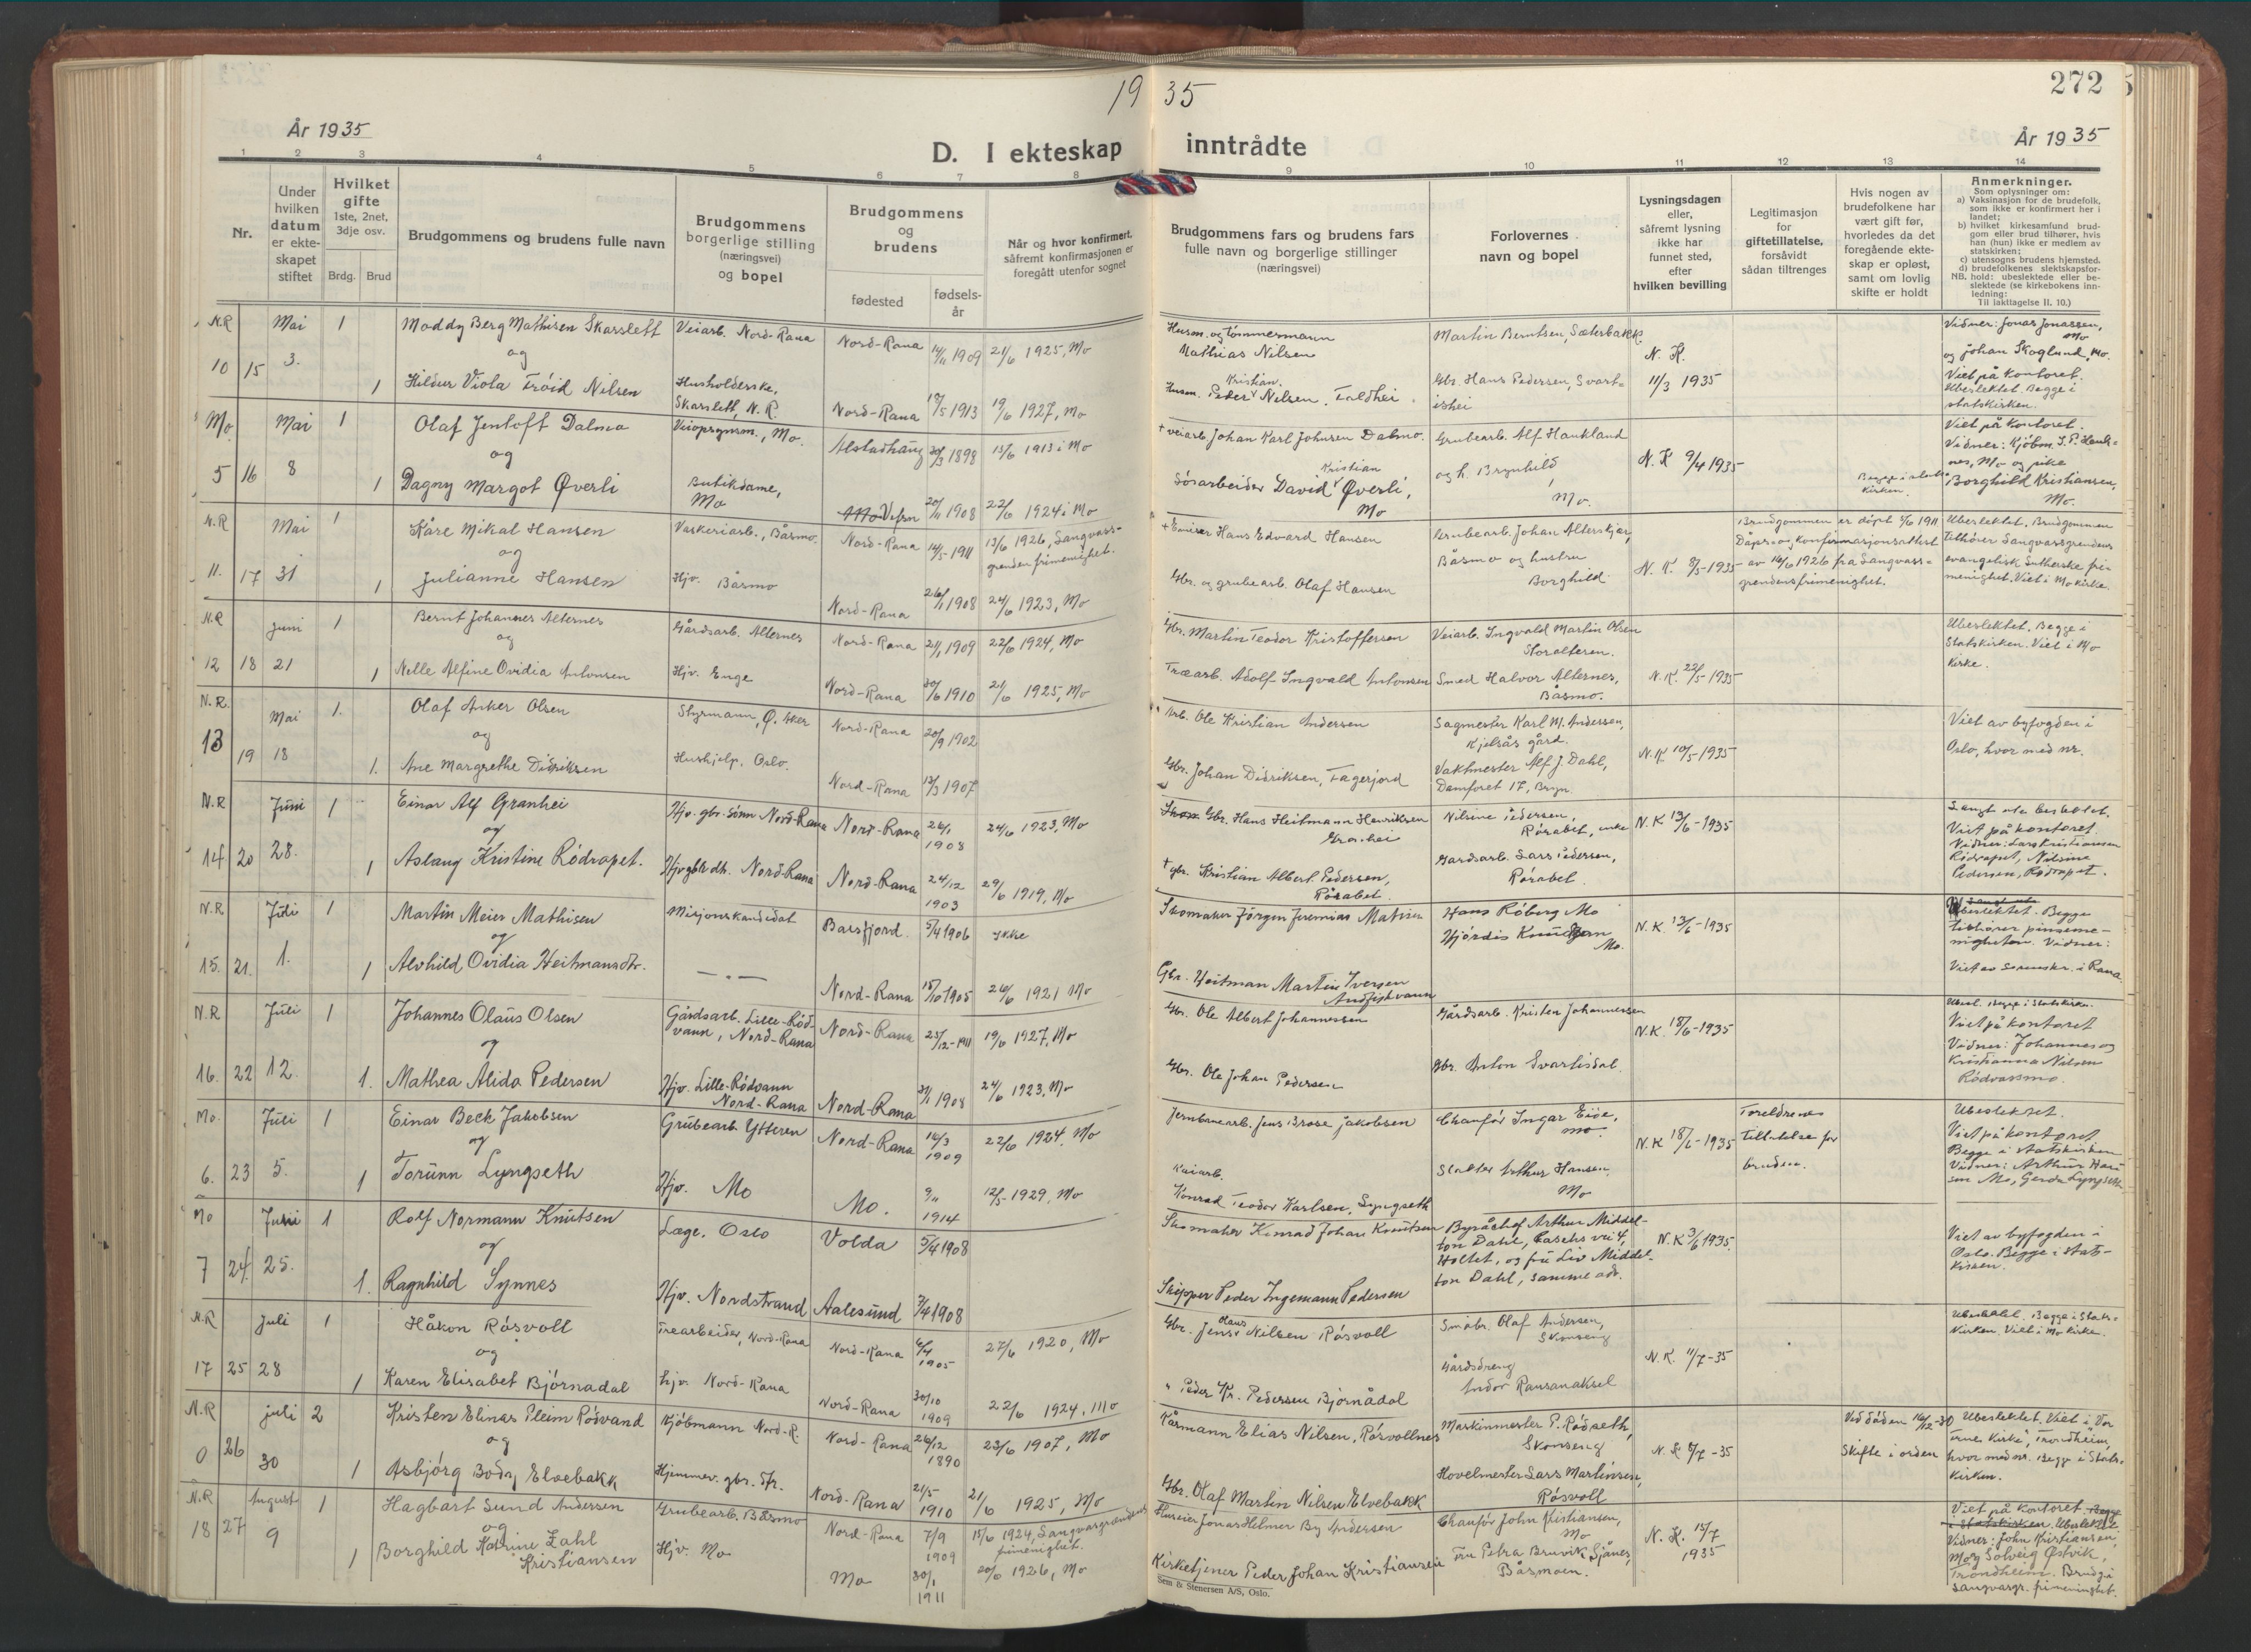 19 35
272
År 1935
D. I ekteskap inntrådte
År 1935
1 2 3 4 5 6 7 8 9 10 11 12 13 14
Nr.
Under hvilken datum er ekteskapet stiftet
Hvilket gifte 1ste, 2net, 3dje osv.
Brdg. Brud
Brudgommens og brudens fulle navn
Brudgommens borgerlige stilling (næringsvei) og bopel
Brudgommens og brudens
fødested
fødselsår
Når og hvor konfirmert, såfremt konfirmasjonen er foregått utenfor sognet
Brudgommens fars og brudens fars fulle navn og borgerlige stillinger (næringsvei)
Forlovernes navn og bopel
Lysningsdagen eller, såfremt lysning ikke har funnet sted, efter hvilken bevilling
Legitimasjon for giftetillatelse, forsåvidt sådan tiltrenges
Hvis nogen av brudefolkene har vært gift før, hvorledes da det foregående ekteskap er opløst, samt om lovlig skifte er holdt
Anmerkninger.
Som oplysninger om:
a) Vaksinasjon for de brudefolk, som ikke er konfirmert her i landet;
b) hvilket kirkesamfund brudgom eller brud tilhører, hvis han (hun) ikke er medlem av statskirken;
c) utensogns brudens hjemsted.
d) brudefolkenes slektskapsforhold: ubeslektede eller beslektede (se kirkebokens innledning:
NB. Til iakttagelse II. 10.)
N.R 10 15 Mai 3. 1 Moddy Berg Mathisen Skarslett Veiarb. Nord-Rana Nord-Rana 14/11 1909 21/6 1925, Mo
og
1 Hildur Viola Trøid Nilsen Husholderske, Skarslett, N.R. Nord-Rana 17/5 1913 19/6 1927, Mo
Husm. og tømmermann Mathias Nilsen
Husm. Peder Kristian Nilsen, Foldhei
Martin Berntsen, Sæterbakk
Gbr. Hans Pedersen, Svartishei
N. K. 11/3 1935
Vidner: Jonas Jonassen, Mo og Johan Skoglund, Mo. Viet på kontoret. Ubeslektet. Begge i statskirken.
Mo 5 16 Mai 8 1 Olaf Jentoft Dalmo Veiopsynsm., Mo. Alstadhaug 30/3 1898 15/6 1913 i Mo
og
1 Dagny Margot Øverli Butikdame, Mo Vefsn 20/11 1908 22/6 1924 i Mo
+ veiarb. Johan Karl Johnsen Dalmo.
Gdsarbeider David Kristian Øverli, Mo
Grubearb. Alf Haukland og h. Brynhild, Mo.
N. K 9/4 1935
Begge i statskirken.
Viet på kontoret. Vidner: Kjøbm. Mo og pike Borghild Kristiansen, Mo.
N.R 11. 17 Mai 31 1 Kåre Mikal Hansen Vaskeriarb., Båsmo. Nord-Rana 14/5-1911 13/6 1926, Langvassgrenden frimenighet.
og
1 Julianne Hansen Hjv. Båsmo Nord-Rana 26/1 1908 24/6 1923, Mo
+ Hans Edvard Hansen
Gbr. og grubearb. Olaf Hansen
Grubearb. Johan Alterskjær, Båsmo og hustru Borghild.
N. K. 8/5-1935
Brudgommen er døpt 4/6 1911 Dåps- og konfirmasjonsattest av 14/6 1926 fra Langvassgrendens frimenighet.
Ubeslektet. Brudgommen tilhører Langvassgrendens evangelisk Lutherske frimenighet. Viet i Mo kirke.
N.R 12 18 Juni 21 1 Bernt Johannes Alternes Gårdsarb. Alternes Nord-Rana 21/1 1909 22/6 1924, Mo
og
1 Nelle Alfine Ovidia Antonsen Hjv. Enge Nord-Rana 30/6 1910 21/6 1925, Mo
Gbr. Martin Teodor Kristoffersen
Træarb. Adolf Ingvald Antonsen
Veiarb. Ingvald Martin Olsen Storalteren.
Smed Halvor Alternes, Båsmo.
N. K. 22/5-1935
Ubeslektet. Begge i Statskirken. Viet i Mo kirke.
N.R. 13 19 Mai 18 1. Olaf Anker Olsen Styrmann, Ø. Aker Nord-Rana 20/9 1902
og
1. Ane Margrethe Didriksen Hushjelp. Oslo. Nord-Rana 13/3 1907
Arb. Ole Kristian Andersen
Gbr. Johan Didriksen, Fagerjord
Sagmester Karl M. Andersen, Kjelsås gård.
Vaktmester Alf J. Dahl, Damforet 17, Bryn.
N.K. 10/5-1935
Viet av byfogden i Oslo, hvor med nr.
N.R 14 20 Juni 28. 1 Einar Alf Granhei Hjv. gbr. sønn Nord-Rana Nord-Rana 26/1 1908 24/6 1923, Mo
og
1 Aslaug Kristine Rödrapet. Hjv gbr dtr. Nord-Rana Nord-Rana 24/12 1903 29/6 1919, Mo
Gbr. Hans Heitmann Henriksen Granhei
+ gbr. Kristian Albert Pedersen, Rörabet
Nilsine Pedersen, Rörabet, enke
Gardsarb. Lars Pedersen, Rörabet.
N.K 13/6-1935
Langt ute beslektet. Viet på kontoret. Vidner: Lars Kristiansen Rödrapet, Nilsine Pedersen, Rödrapet.
N.R 15. 21. Juli 1. 1 Martin Meier Mathisen Misjonskandidat Balsfjord. 5/4 1906 ikke
og
1 Alvhild Ovidia Heitmansdtr. — " — Nord-Rana 18/10 1905 26/6 1921 Mo
Skomaker Jørgen Jeremias Matisen
Gbr. Heitman Martin Iversen Andfiskvann
Hans Röberg Mo
Hjördis Mo.
N.K. 13/6-1935
Ubeslektet. Begge tilhører pinsemenigheten. Vidner:
Viet av sorenskr. i Rana
N.R 16. 22 Juli 12. 1 Johannes Olaus Olsen Gårdsarb. Lille-Rödvann, Nord-Rana Nord-Rana 25/12-1911 19/6 1927, Mo
og
1. Mathea Alida Pedersen Hjv. Lille-Rödvann Nord-Rana Nord-Rana 31/1 1908 24/6 1923, Mo
Gbr. Ole Albert Johannessen
Gbr. Ole Johan Pedersen
Gårdsarb. Kristen Johannessen
Gbr. Anton Svartisdal.
N.K. 18/6-1935
Ubesl. Begge i Statskirken. Viet på kontoret Vidner: Johannes og Kristianna Nilsen Rödvassmo.
Mo 6. 23 Juli 5. 1 Einar Beck Jakobsen Grubearb. Ytteren Nord-Rana 16/3 1909 22/6 1924, Mo
og
1 Torunn Lyngseth Hjv. Mo Mo. 9/11 1914 12/5-1929, Mo
Jernbanearb. Jens Brose Jakobsen
Kaiarb. Konrad Teodor Karlsen, Lyngseth
Chaufør Ingar Eide, Mo.
Slakter Arthur Hansen. Mo
N.K 18/6-1935
Foreldrenes tillatelse for bruden.
Ubeslektet. Viet på kontoret Begge i Statskirken Vidner: Arthur Hansen Mo, Gerda Lyngseth
Mo 7 24. Juni 25. 1 Rolf Normann Knutsen Læge, Oslo Volda 5/4 1908
og
1. Ragnhild Synnes Hjv. Nordstrand Aalesund 7/4 1908
Skomaker Konrad Johan Knutsen
Skipper Peder Ingemann Pedersen
Byråchef Arthur Middelton Dahl, Raschs vei 4, Holtet, og fru Liv Middelton Dahl, samme adr.
N.K 3/6 1935.
Viet av byfogden i Oslo. Begge i Statskirken.
N.R 17 25 Juli 28 1 Håkon Råsvoll Trearbeider, Nord-Rana Nord-Rana 6/4 1905 27/6 1920, Mo
og
1 Karen Elisabet Bjørnådal hjv. Nord-Rana Nord-Rana 30/10 1909 22/6 1924, Mo
Gbr. Jens Klaus Nilsen Røsvoll
" Peder Kr. Pedersen Bjørnådal
Småbr. Olaf Andersen, Skonseng
Gårdsdreng Andor Ranaanaksel
N. K. 11/7-35
Ubeslektet. Begge i Statskirken. Viet i Mo kirke.
N.R 0 26 Juli 30 2 Kristen Elinas Pleim Rödvand Kjøbmann Nord-R. Nord-Rana 26/12 1890 23/6 1907, Mo
og
1 Asbjørg Bodny Elvebakk Hjemmev. gbr. dtr. Nord-Rana 21/5 1910 21/6 1925, Mo
Kårmann Elias Nilsen, Røsvollnes
Gbr. Olaf Martin Nilsen Elvebakk
Maskinmester P. Rødseth, Skonseng
Hovelmester Lars Martinsen, Røsvoll
N. K. 8/7-35
Ved døden 16/12-30 Skifte i orden
Ubeslektet. Viet i "Vor Frues Kirke", Trondheim, hvor med nr. Begge i Statskirken.
N.R 18 27 August 9 1 Hagbart Sund Andersen Grubearb. Båsmo Nord-Rana 7/9 1909 15/6 1924, Langvasgrændens frimenighet.
og
1 Borghild Katrine Zahl Kristiansen Hjv. Mo Mo 30/1 1911 20/6 1926, Mo
Huseier Jonas Hilmer By Andersen
Kirketjener Peder Johan Kristiansen
Chaufør John Kristiansen, Mo
Fru Petra Bruvik Sjånes, Båsmoen.
N. K. 15/7 1935
Viet på kontoret. Begge i Statskirken. Ubeslektet Vidner: John Kristiansen, Mo og Solveig Østvik, Trondheim. Brudg. i Langvasgr. frimenighet.
Sem & Stenersen A/S, Oslo.